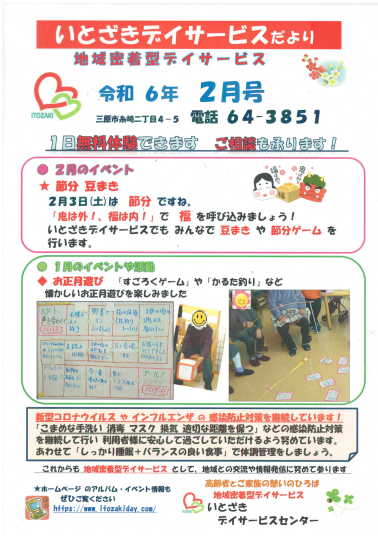 いとざきデイサービスだより
地域密着型デイサービス
ITOZAKI
令和 6年 2月号
三原市糸崎二丁目4-5 電話 64-3851
1日無料体験できます ご相談も承ります!
● 2月のイベント
★ 節分 豆まき
2月3日(土)は 節分 ですね。
「鬼は外!、福は内!」で 福 を呼び込みましょう!
いとざきデイサービスでも みんなで 豆まき や 節分ゲーム を
行います。
● 1月のイベントや活動
◆ お正月遊び 「すごろくゲーム」や「かるた釣り」など
懐かしいお正月遊びを楽しみました
新型コロナウイルス や インフルエンザ の 感染防止対策を継続しています!
「こまめな手洗い 消毒 マスク 換気 適切な距離を保つ」などの感染防止対策
を継続して行い 利用者様に安心して過ごしていただけるよう努めています。
あわせて「しっかり睡眠+バランスの良い食事」で体調管理をしましょう。
これからも 地域密着型デイサービス として、地域との交流や情報発信に努めて参ります
★ホームページ のアルバム・イベント情報も
ぜひご覧ください
https://www.itozakiday.com/
高齢者とご家族の憩いのひろば
地域密着型デイサービス
いとざき
デイサービスセンター